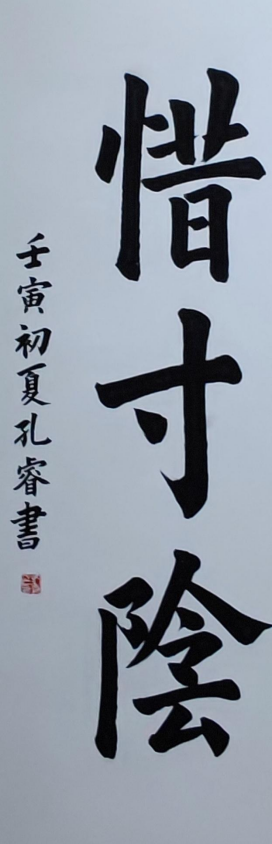 惜寸陰
壬寅初夏孔睿書